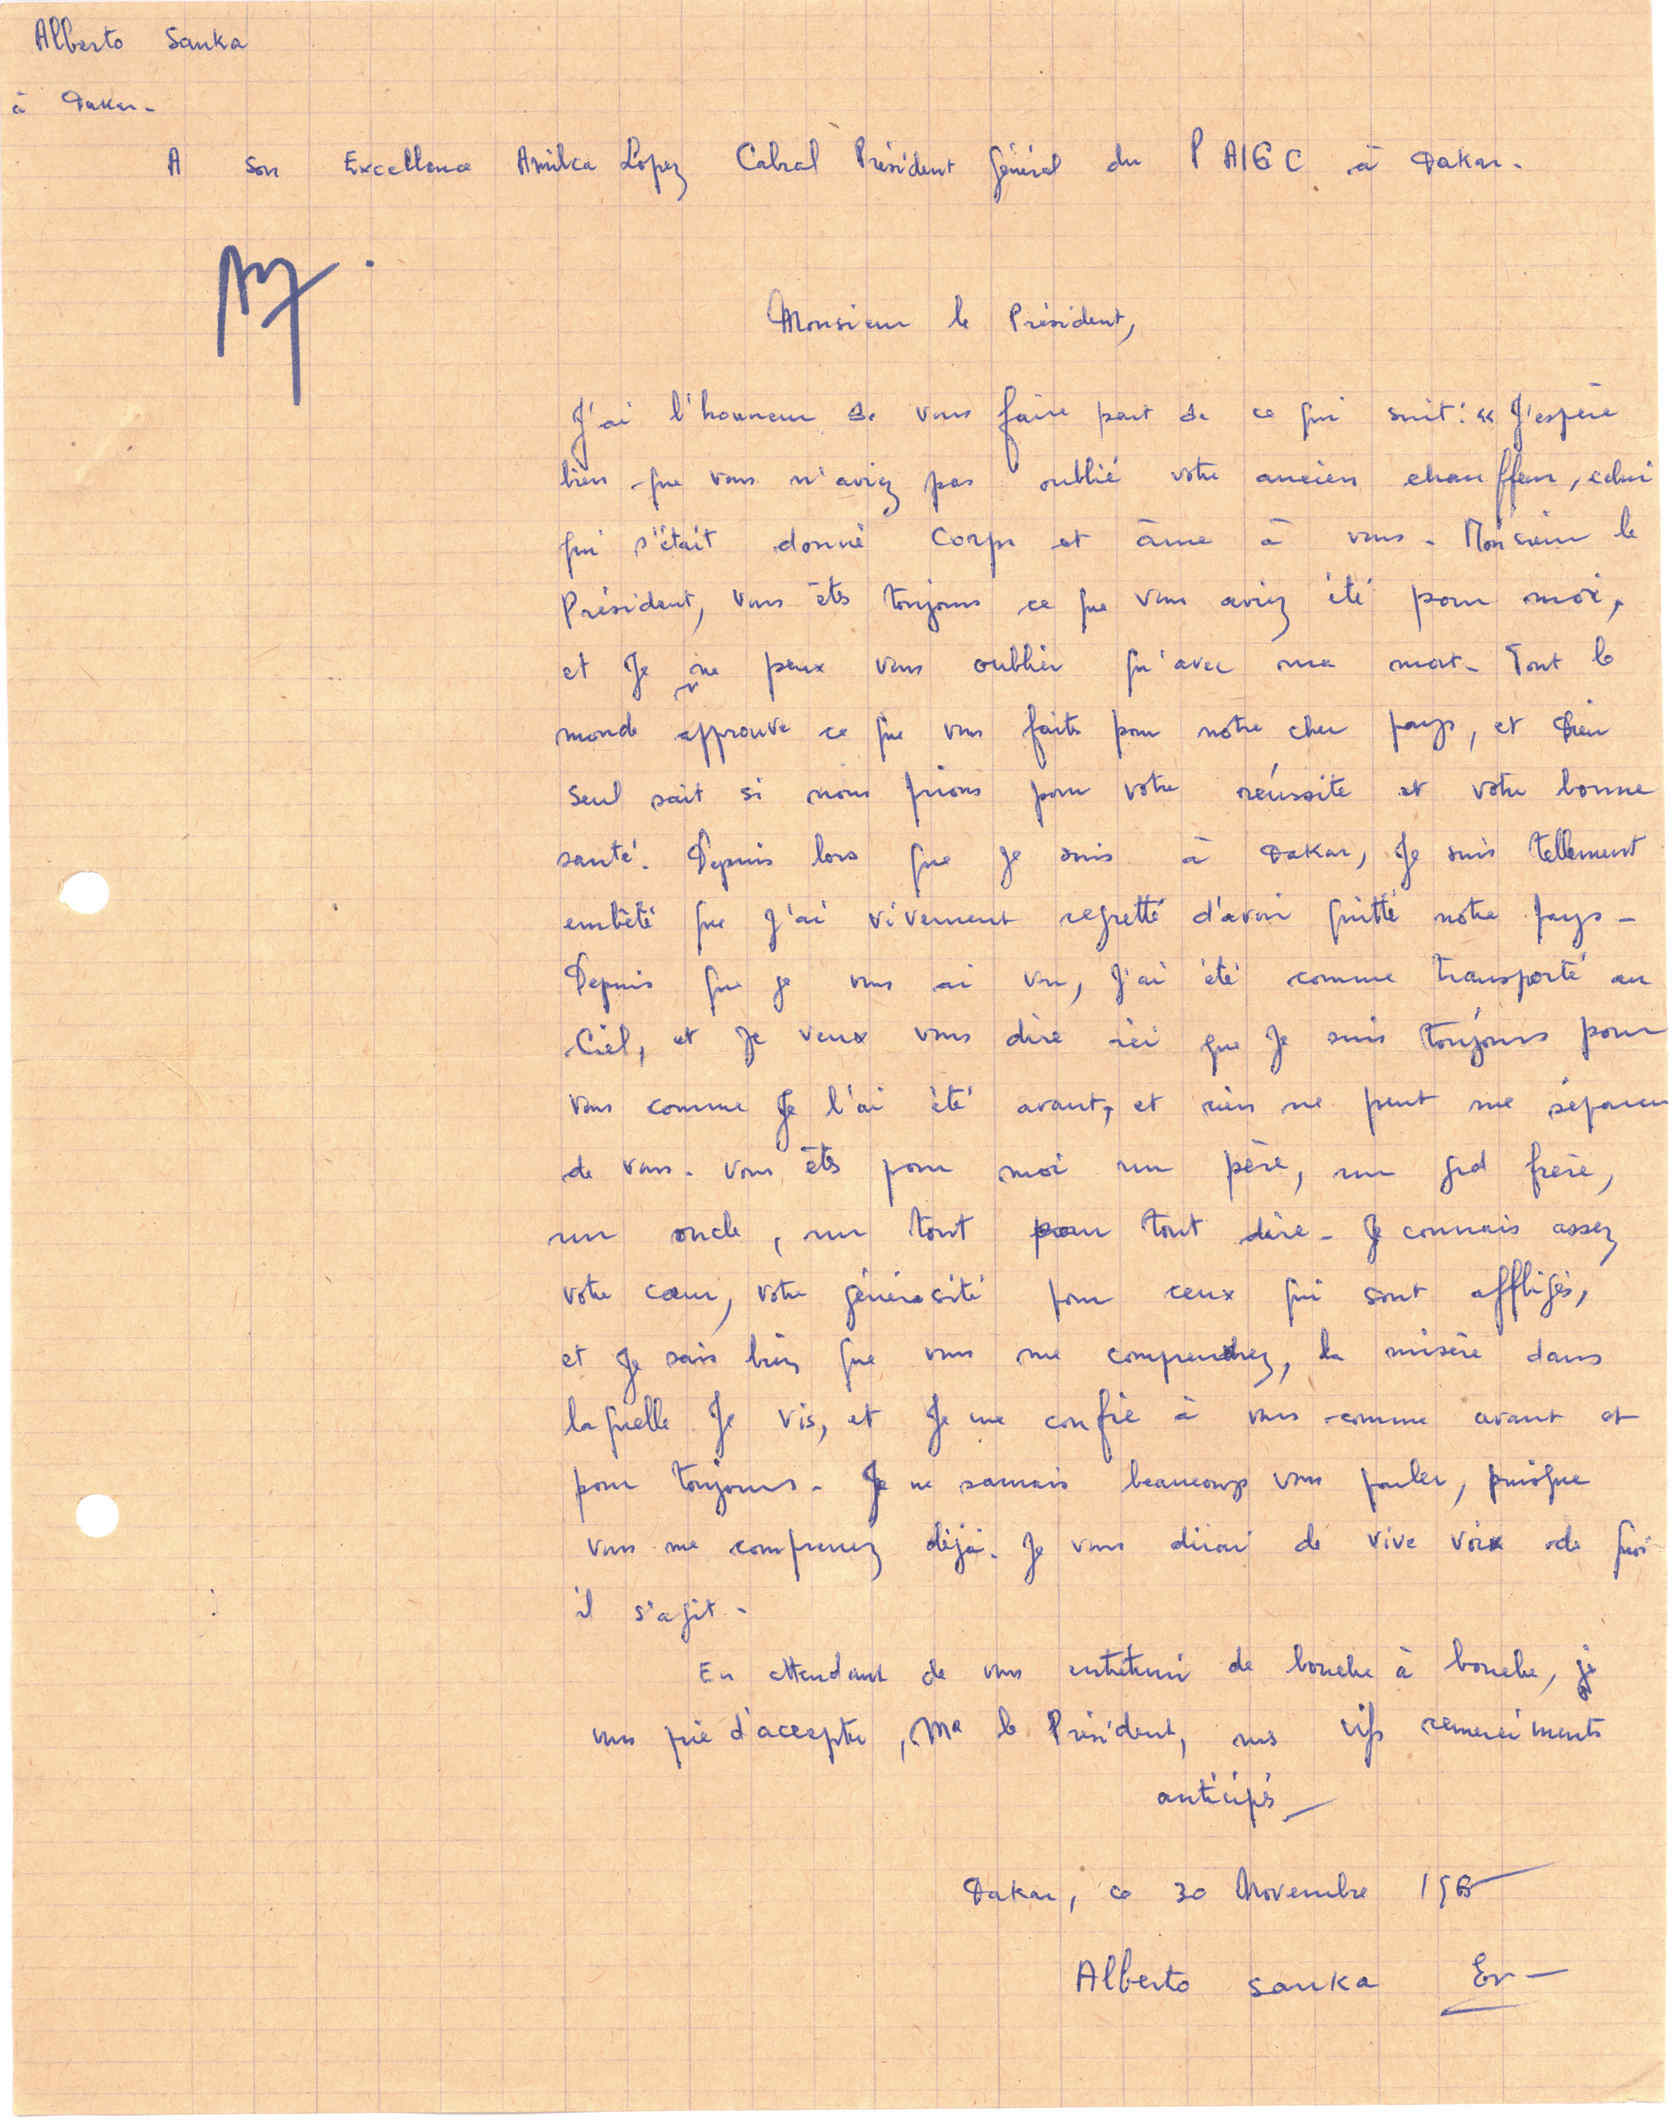 Alberto Sanka
à Dakar -
A son Excellence Amilca Lopez Cabral Président Général du P AIGC à Dakar -
Monsieur le Président,
J'ai l'honneur de vous faire part de ce qui suit : « J'espère
bien que vous n'aviez pas oublié votre ancien chauffeur, celui
qui s'était donné corps et âme à vous - Monsieur le
Président, vous êtes toujours ce que vous aviez été pour moi,
et Je ne peux vous oublier qu'avec ma mort - Tout le
monde approuve ce que vous faites pour notre cher pays, et Dieu
seul sait si nous prions pour votre réussite et votre bonne
santé. Depuis lors que je suis à Dakar, Je suis tellement
embêté que j'ai vivement regretté d'avoir quitté notre pays -
Depuis que je vous ai vu, J'ai été comme transporté au
Ciel, et Je veux vous dire ici que Je suis toujours pour
vous comme Je l'ai été avant, et rien ne peut me séparer
de vous - vous êtes pour moi un père, un grd frère,
un oncle, un tout pour tout dire - Je connais assez
votre cœur, votre générosité pour ceux qui sont affligés,
et Je sais bien que vous me comprendrez, la misère dans
laquelle Je vis, et Je me confie à vous comme avant et
pour toujours - Je ne saurais beaucoup vous parler, puisque
vous me comprenez déjà - Je vous dirai de vive voix de quoi
il s'agit -
En attendant de vous entretenir de bouche à bouche, je
vous prie d'accepter, Mr le Président, mes vifs remerciments
anticipés -
Dakar, ce 30 Novembre 1965
Alberto Sanka